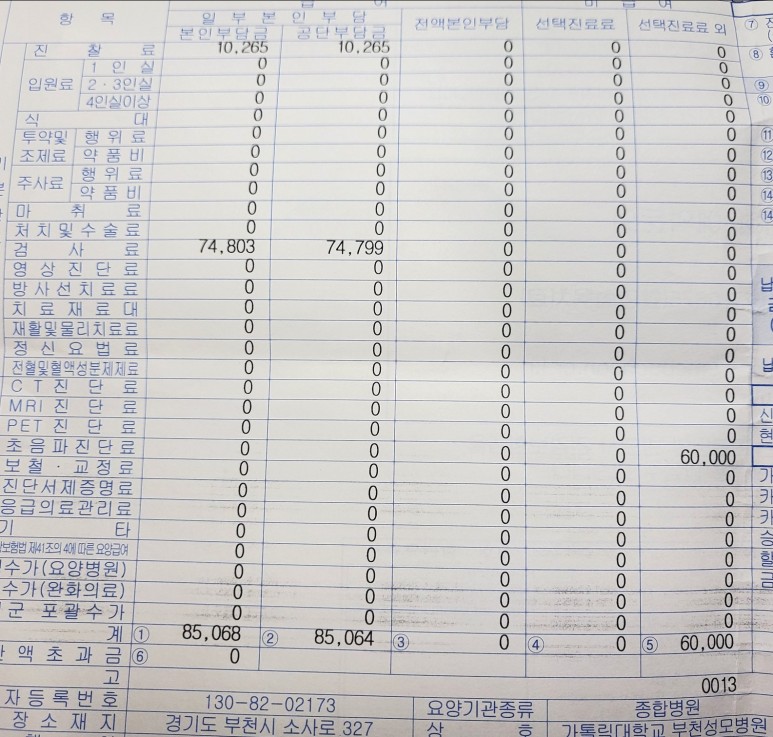 항 목 일 부 본 인 부 담 전액본인부담 선택진료료 선택진료료 외 ⑦
본인부담금 공단부담금
진 찰 료 10,265 10,265 0 0 0 ⑧
입원료 1 인 실 0 0 0 0 0
2 · 3인실 0 0 0 0 0 ⑨
4인실이상 0 0 0 0 0 ⑩
식 대 0 0 0 0 0
투약및 조제료 행 위 료 0 0 0 0 0 ⑪
약 품 비 0 0 0 0 0 ⑫
주사료 행 위 료 0 0 0 0 0 ⑬
약 품 비 0 0 0 0 0 ⑭
마 취 료 0 0 0 0 0 ⑭
처 치 및 수 술 료 0 0 0 0 0
검 사 료 74,803 74,799 0 0 0
영 상 진 단 료 0 0 0 0 0
방 사 선 치 료 료 0 0 0 0 0
치 료 재 료 대 0 0 0 0 0
재활및물리치료료 0 0 0 0 0
정 신 요 법 료 0 0 0 0 0
전혈및혈액성분제제료 0 0 0 0 0
C T 진 단 료 0 0 0 0 0
MRI 진 단 료 0 0 0 0 0
PET 진 단 료 0 0 0 0 0
초 음 파 진 단 료 0 0 0 0 60,000
보 철 · 교 정 료 0 0 0 0 0
진단서제증명료 0 0 0 0 0
응급의료관리료 0 0 0 0 0
기 타 0 0 0 0 0
보험법 제41조의 4에 따른 요양급여 0 0 0 0 0
수가(요양병원) 0 0 0 0 0
수가(완화의료) 0 0 0 0 0
군 포 괄 수 가 0 0 0 0 0
계 ① 85,068 ② 85,064 ③ 0 ④ 0 ⑤ 60,000
액 초 과 금 ⑥ 0
고 0013
자 등 록 번 호 130-82-02173 요양기관종류 종합병원
장 소 재 지 경기도 부천시 소사로 327 상 호 가톨릭대학교 부천성모병원